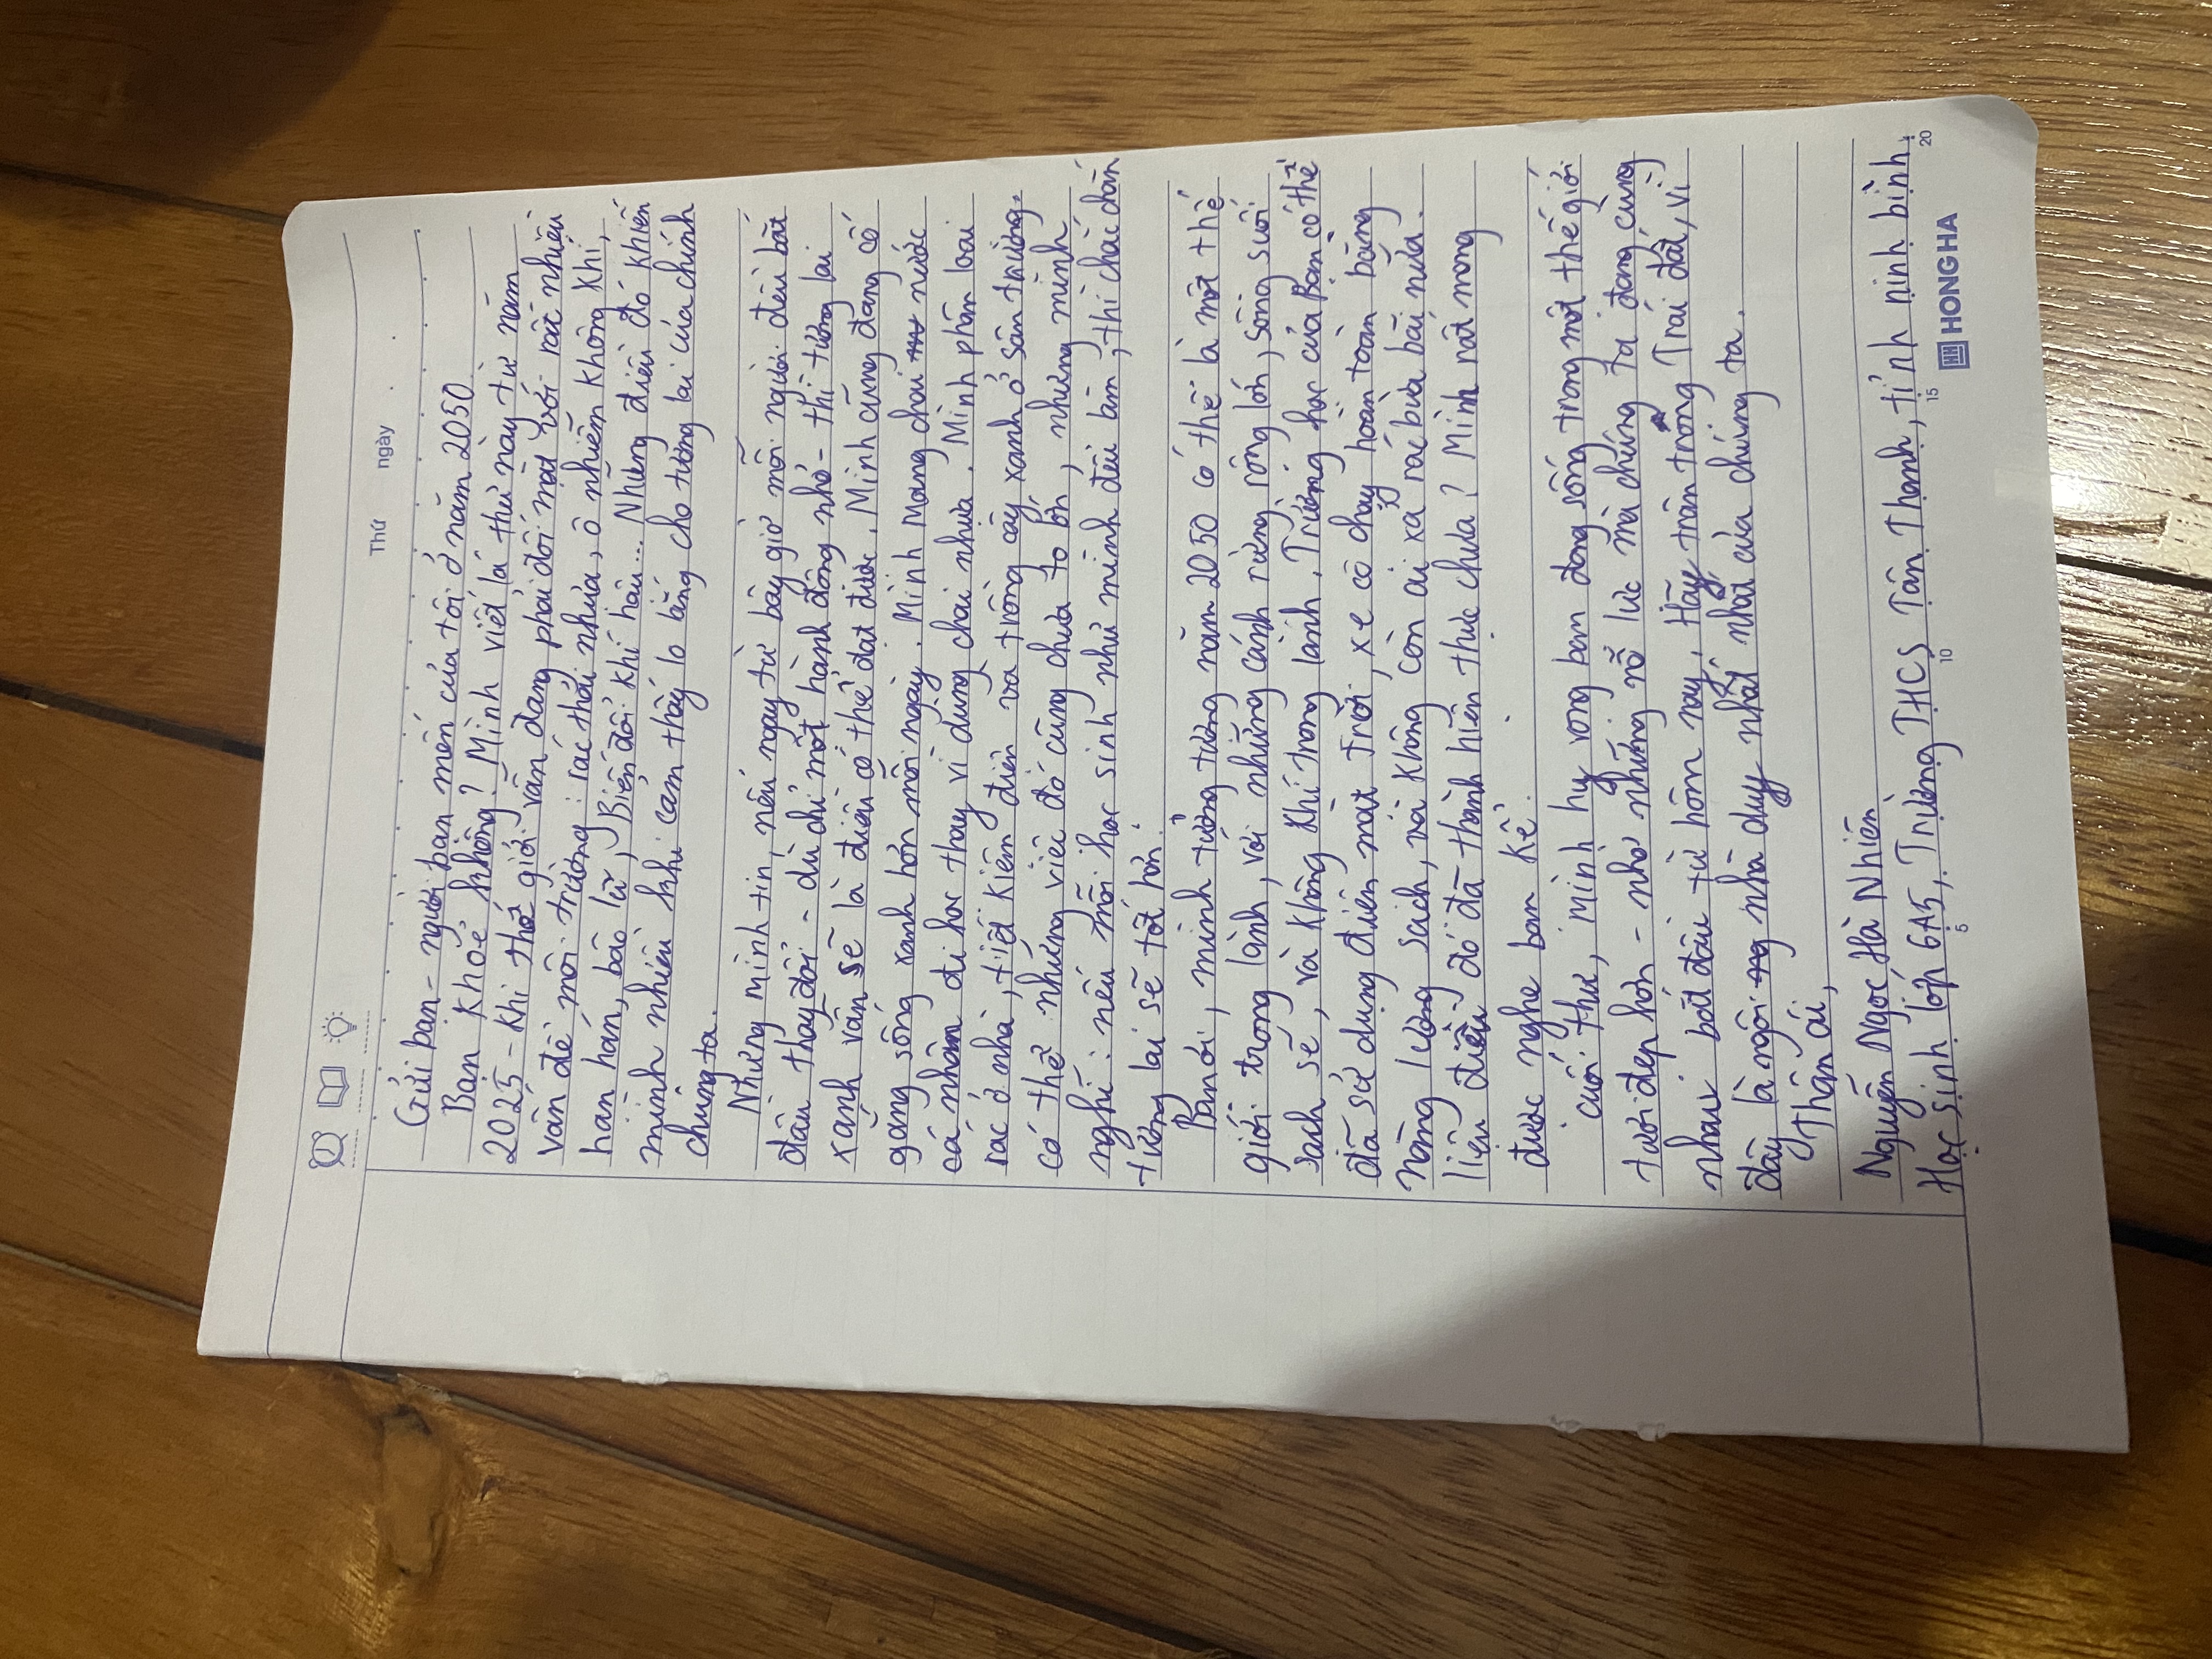 Thứ ngày
Gửi bạn - người bạn mến của tôi ở năm 2050
Bạn khoẻ không? Mình viết lá thư này từ năm
2025 - khi thế giới vẫn đang phải đối mặt với rất nhiều
vấn đề môi trường: rác thải nhựa, ô nhiễm không khí,
hạn hán, bão lũ, Biến đổi khí hậu... Những điều đó khiến
mình nhiều khi cảm thấy lo lắng cho tương lai của chính
chúng ta.
Nhưng mình tin, nếu ngay từ bây giờ mỗi người đều bắt
đầu thay đổi - dù chỉ một hành động nhỏ - thì tương lai
xanh vẫn sẽ là điều có thể đạt được. Mình cũng đang cố
gắng sống xanh hơn mỗi ngày. Mình mang chai nước
cá nhân đi học thay vì dùng chai nhựa. Mình phân loại
rác ở nhà, tiết kiệm điện và trồng cây xanh ở sân trường.
Có thể những việc đó cũng chưa to lớn, nhưng mình
nghĩ: nếu mỗi học sinh như mình đều làm, thì chắc chắn
tương lai sẽ tốt hơn.
Bạn ơi, mình tưởng tượng năm 2050 có thể là một thế
giới trong lành, với những cánh rừng rộng lớn, sông suối
sạch sẽ, và không khí trong lành. Trường học của Bạn có thể
đã sử dụng điện mặt Trời, xe cộ chạy hoàn toàn bằng
năng lượng sạch, và không còn ai xả rác bừa bãi nữa.
liệu điều đó đã thành hiện thực chưa? Mình rất mong
được nghe bạn kể.
cuối thư, mình hy vọng bạn đang sống trong một thế giới
tươi đẹp hơn - nhờ những nỗ lực mà chúng ta đang cùng
nhau bắt đầu từ hôm nay. Hãy trân trọng Trái đất, vì
đây là ngôi nhà duy nhất nhất của chúng ta.
Thân ái,
Nguyễn Ngọc Hà Nhiên
Học sinh lớp 6A5, Trường THCS Tân Thạnh, tỉnh ninh bình.
5 10 15 20
HH HONG HA